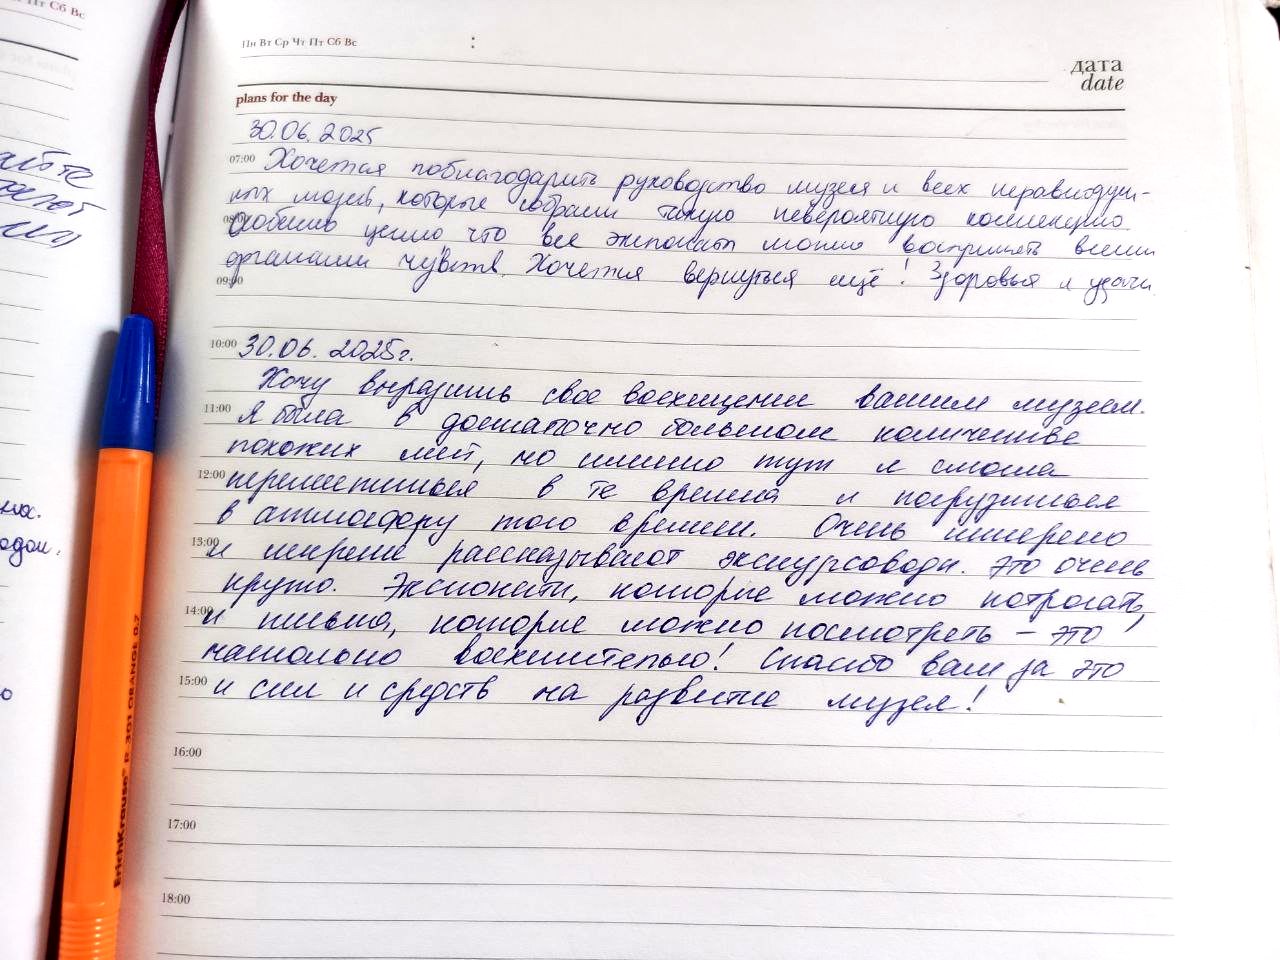 Пт Сб Вс
Пн Вт Ср Чт Пт Сб Вс
:
дата
date
plans for the day
30.06.2025
07:00 Хочется поблагодарить руководство музея и всех неравнодуш-
ных людей, которые собрали такую невероятную коллекцию.
08:00 Особенно ценно что все экспонаты можно воспринять всеми
органами чувств. Хочется вернуться ещё! Здоровья и удачи
09:00
10:00 30.06.2025г.
Хочу выразить свое восхищение вашим музеем.
11:00 Я была в достаточно большом количестве
похожих мест, но именно тут я смогла
12:00 переместиться в те времена и погрузиться
в атмосферу того времени. Очень интерено
13:00 и искрене рассказывают экскурсовода. Это очень
круто. Экспонаты, которые можно потрогать,
14:00 и письма, которые можно посмотреть – это
настолько восхитетельно! Спасибо вам за это
15:00 и сил и средств на развитие музея!
16:00
17:00
18:00
ErichKrause® R 301 ORANGE 0.7